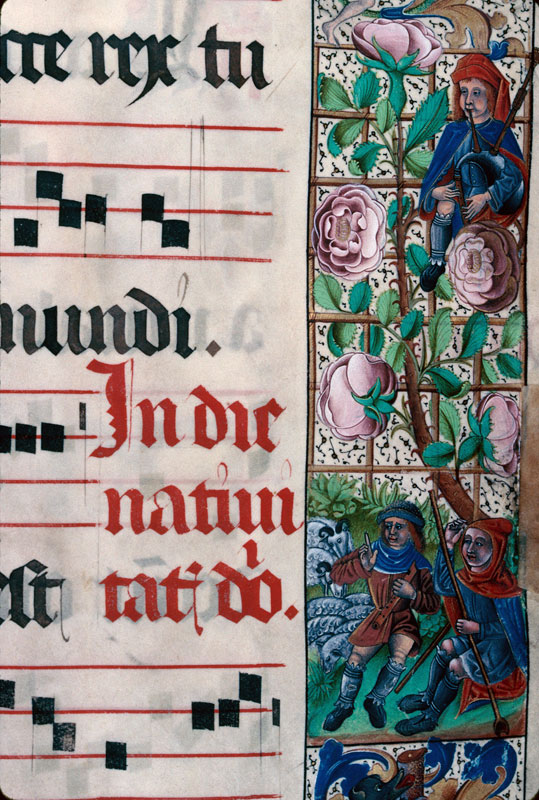 rex tu
mundi.
In die
natiui
est tatis do.